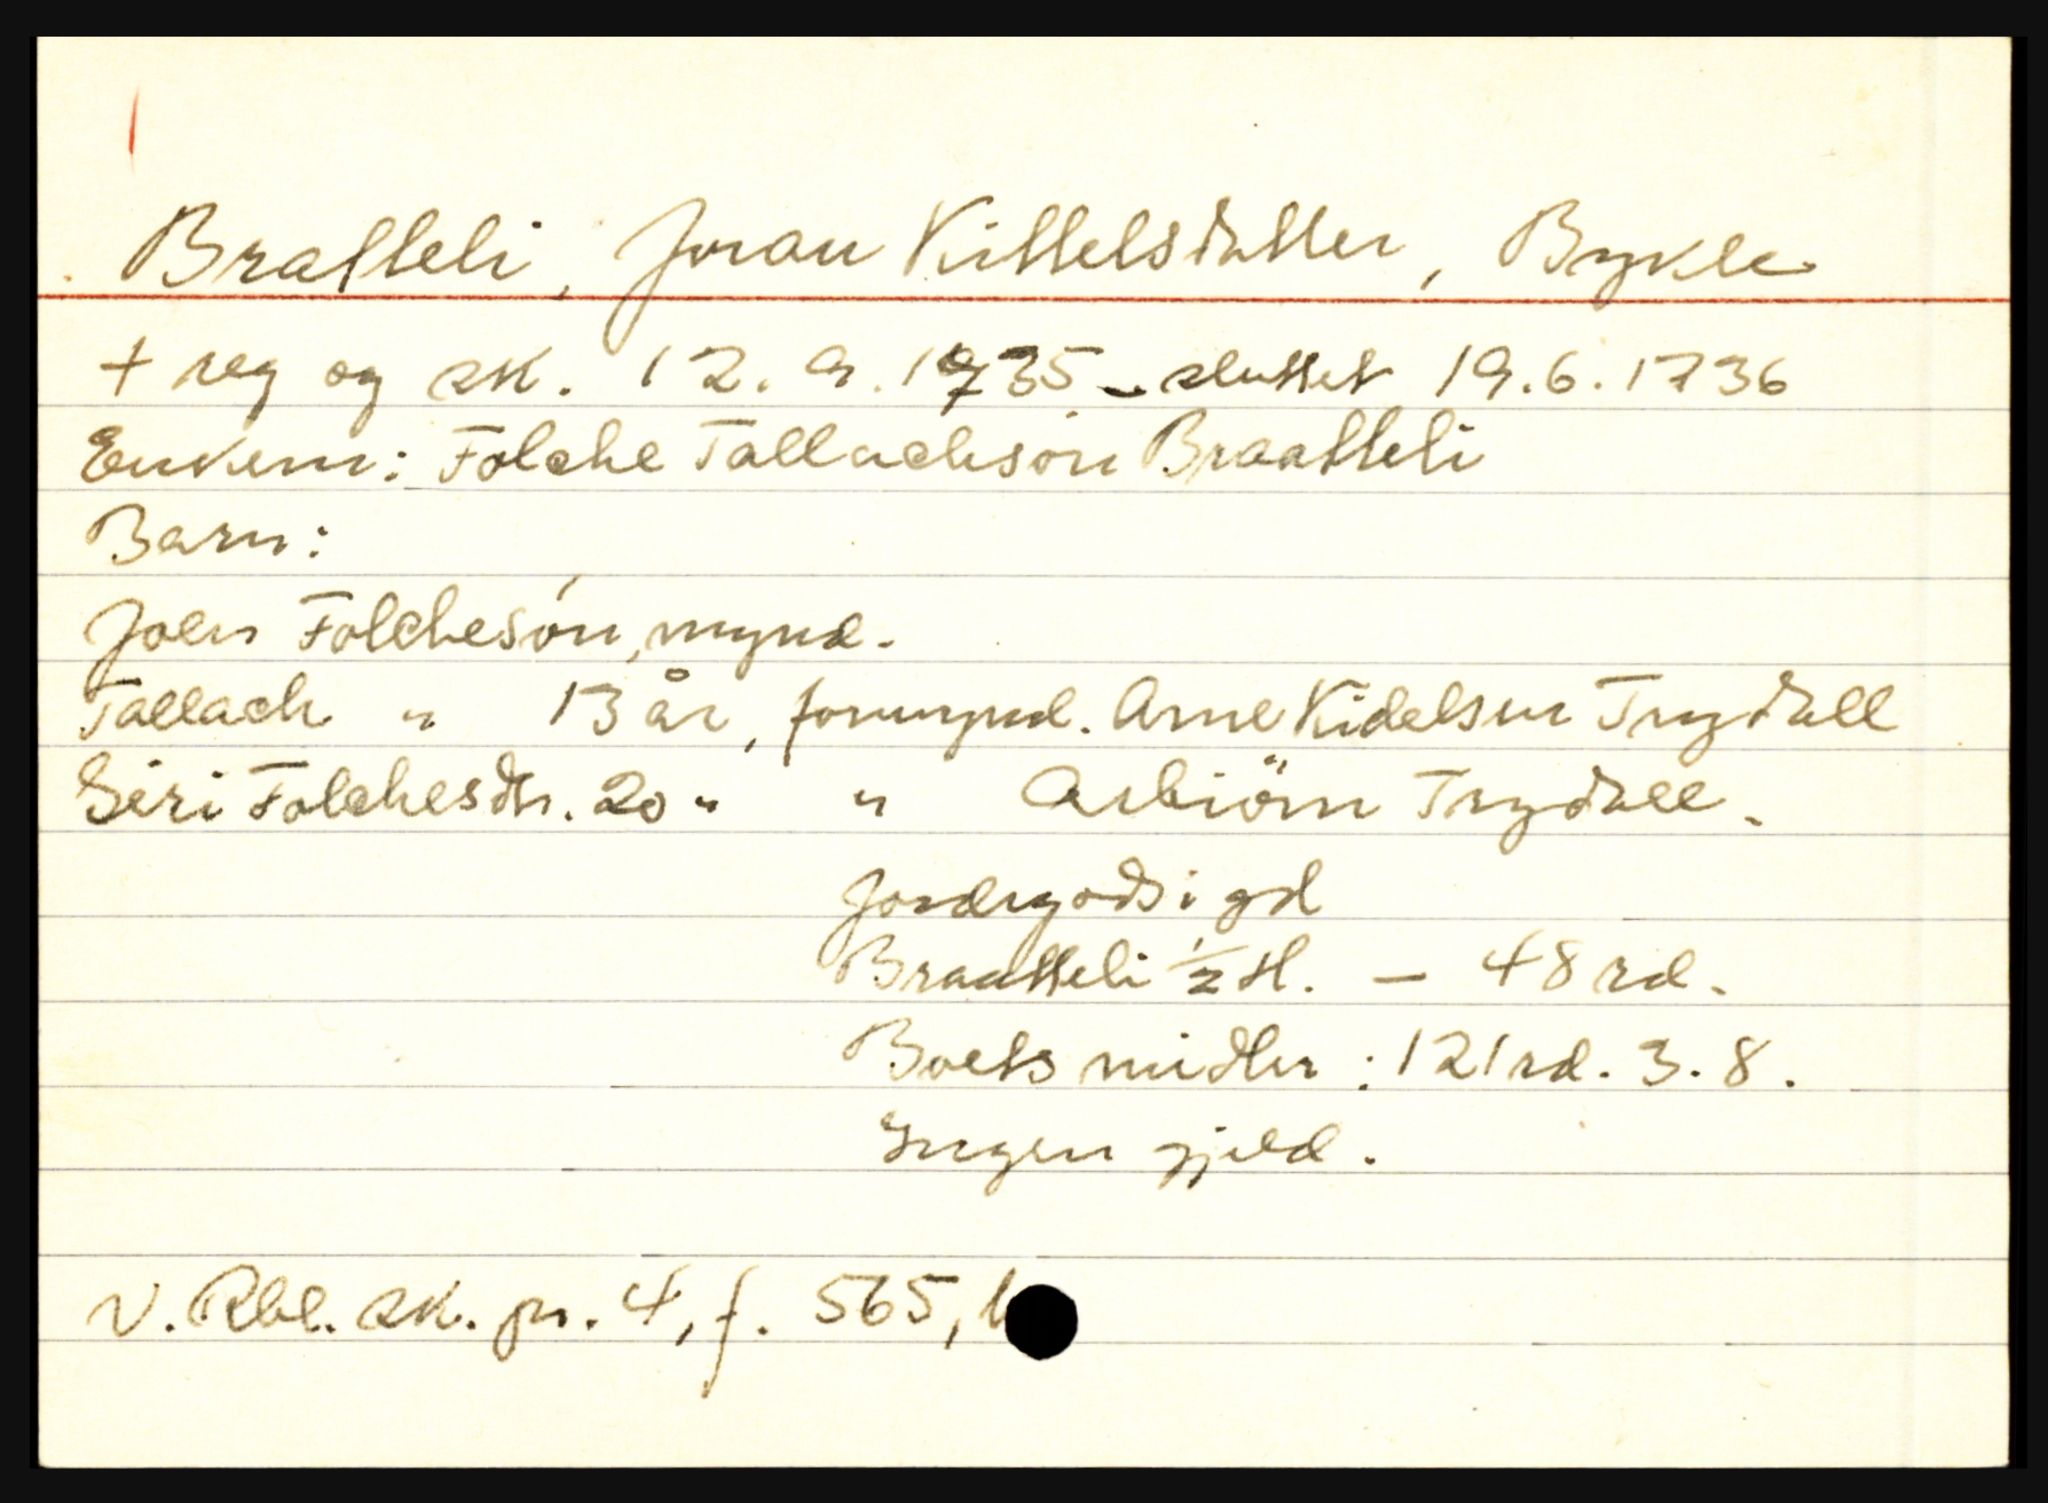 Bratteli, Joran Kittelsdatter, Bykle
+ reg og sk. 12.9.1735 - sluttet 19.6.1736
Enkem: Folche Tallachsón Braatteli
Barn:
Joen Folchesón, mynd.
Tallach " 13 år, formynd. Arne Kidelsen Trydall
Siri Folchesdtr. 20 " " Asbiörn Trydall.
Jordegods i gd
Braatteli ½ hd. - 48 rd.
Boets midler: 121 rd. 3. 8.
Ingen gjeld.
N. Rbl. sk. pr. 4, f. 565, b